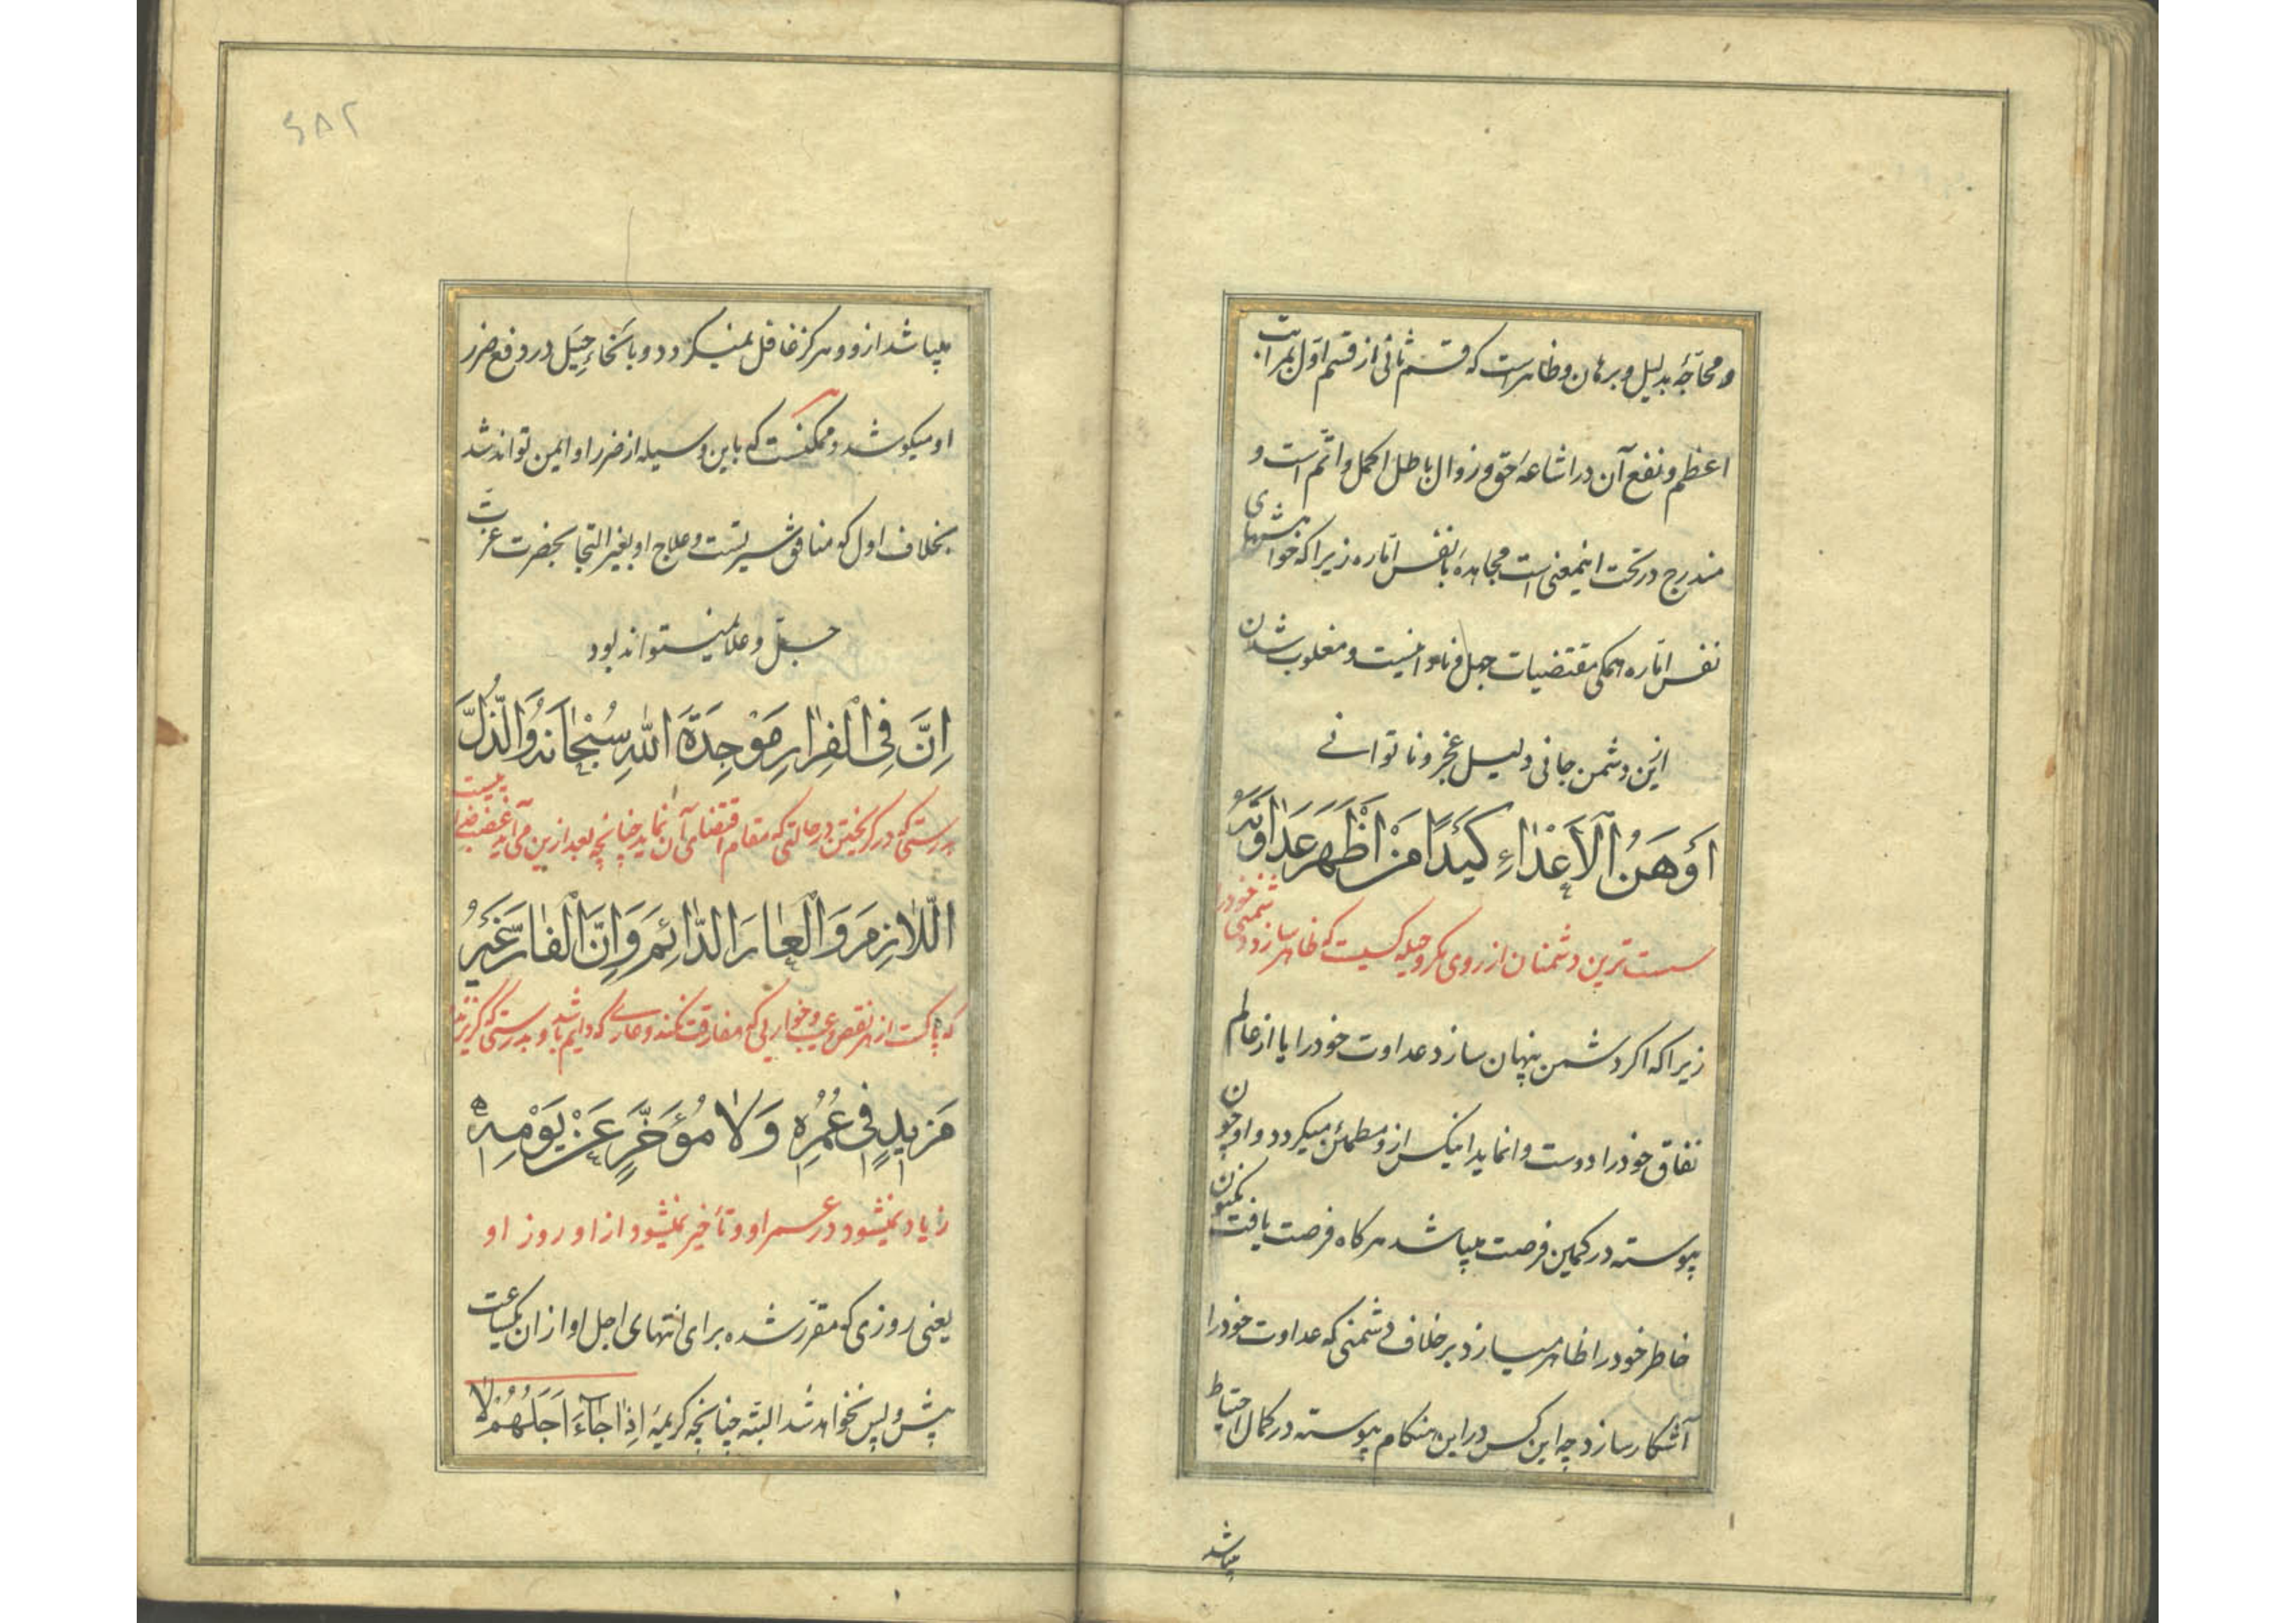 و محاجّه بدلیل و برهان و ظاهراست که قسم ثانی از قسم اوّل بمراتب
اعظم و نفع آن در اشاعهٔ حق و زوال باطل اکمل و اتم است و
مندرج در تحت اینمعنی است مجاهده با نفس امّاره زیرا که خواهشهای
نفس امّاره همکی مقتضیات جهل و نادانیست و مغلوب شدن
این دشمن جانی دلیل عجز و ناتوانی
اَوْهَنُ الْاَعْدٰاءِ كَيْدًا مَنْ اَظْهَرَ عَدٰاوَتَهُ
سست ترین دشمنان از روی مکر و حیله کسیست که ظاهر سازد دشمنی خود را
زیرا که اکر دشمن پنهان سازد عداوت خود را یا از عالم
نفاق خود را دوست وانماید اینکس ازو مطمئن میکردد و او چون
پیوسته در کمین فرصت میباشد هرکاه فرصت یافت مکنون
خاطر خود را ظاهر میسازد بر خلاف دشمنی که عداوت خود را
آشکار سازد چه این کس در این هنکام پیوسته در کمال احتیاط
میباشد
۶۸۲
میباشد ازو و هرکز غافل نمیکردد و بانحاءِ حِیَل در دفع ضرر
او میکوشد و ممکنست که باین وسیله از ضرر او ایمن تواند شد
بخلاف اول که منافق شریست و علاج او بغیر التجا بحضرت عزت
جلّ و علا نمیتواند بود
اِنَّ فِی الْفِرٰارِ مَوْجِدَةَ اللهِ سُبْحٰانَهُ وَالذُّلَّ
بدرستی که در کریختن در حالتی که مقام اقتضای آن نماید چنانچه بعد ازین می آید غضب خدائیست
اللّٰازِمَ وَالْعٰارَ الدّٰائِمَ وَاِنَّ الْفٰارَّ غَيْرُ
که پاکست از هر نقص و عیب و خواریی که مفارقت نکند و عاری که دایم باشد و بدرستی که کریزنده
مَزيدٍ فِی عُمُرِهِ وَلٰا مُؤَخَّرٍ عَنْ يَوْمِهِ
زیاد نمیشود در عمر او و تأخیر نمیشود از او روز او
یعنی روزی که مقرّر شده برای انتهای اجل او از ان یکساعت
پیش و پس نخواهد شد البتّه چنانچه کریمهٔ اِذٰا جٰاءَ اَجَلُهُمْ لٰا